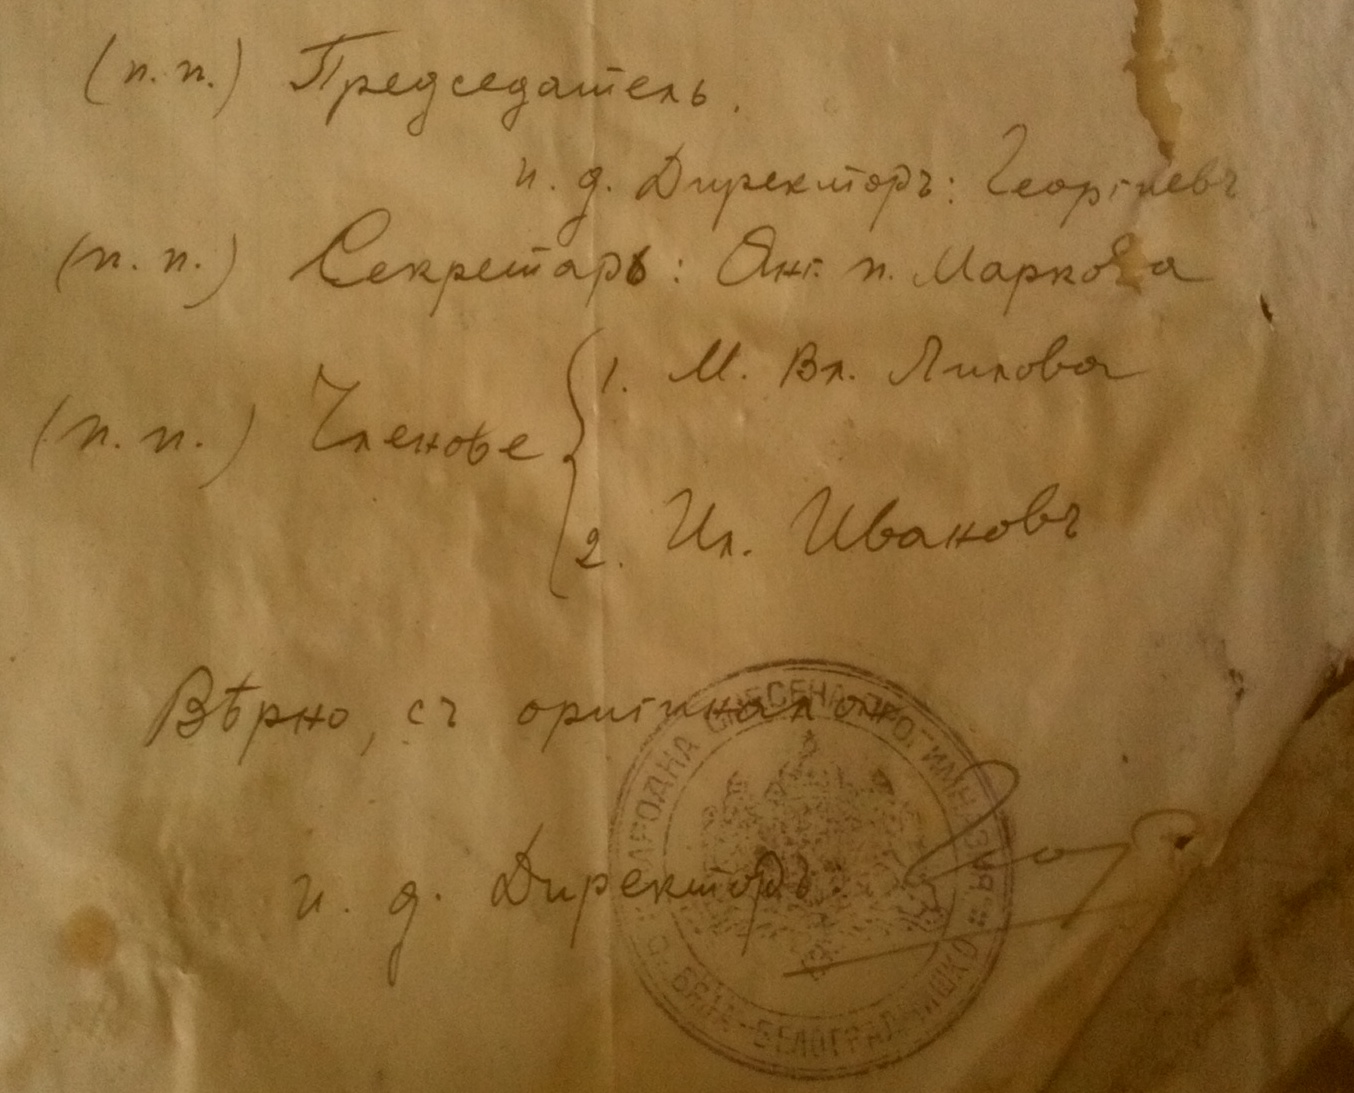 (п. п.) Председатель.
и. д. Директоръ: Георгиевъ
(п. п.) Секретарь: Анг. п. Маркова
(п. п.) Членове
1. М. Вл. Лилова
2. Ил. Ивановъ
Вѣрно, съ оригинала
и. д. Директоръ:
НАРОДНА СМЕСЕНА ПРОГИМНАЗИЯ
БЕЛОГРАДЧИШКО